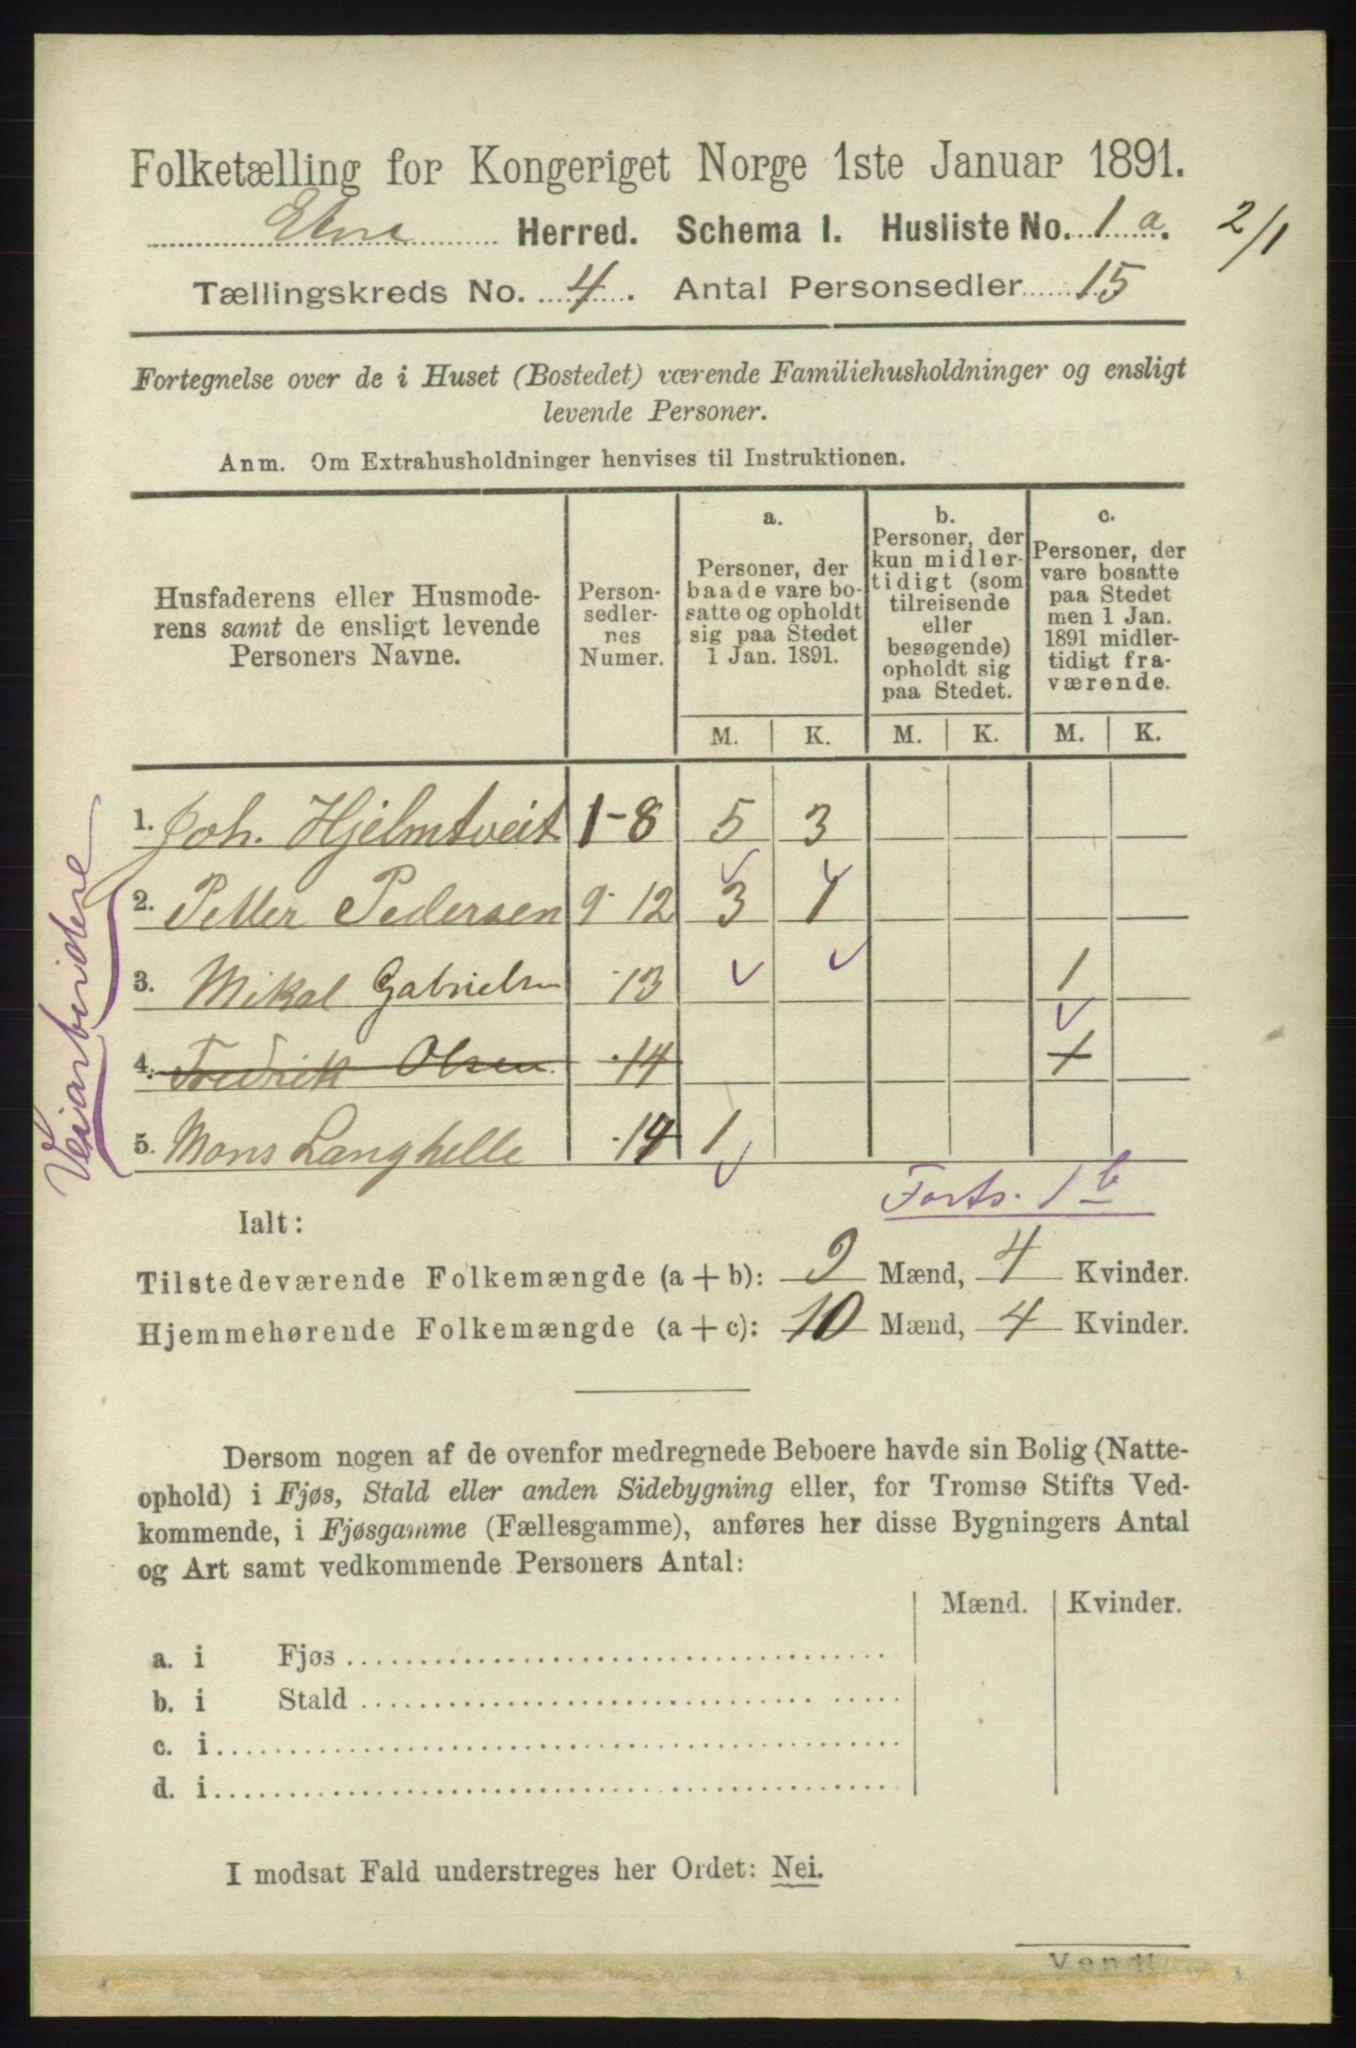 Folketælling for Kongeriget Norge 1ste Januar 1891.
Etne Herred. Schema I. Husliste No. 1 a. 2/1
Tællingskreds No. 4. Antal Personsedler 15
Fortegnelse over de i Huset (Bostedet) værende Familiehusholdninger og ensligt
levende Personer.
Anm. Om Extrahusholdninger henvises til Instruktionen.
Husfaderens eller Husmode-
rens samt de ensligt levende
Personers Navne.
Person-
sedler-
nes
Numer.
a.
Personer, der
baade vare bo-
satte og opholdt
sig paa Stedet
1 Jan. 1891.
b.
Personer, der
kun midler-
tidigt (som
tilreisende
eller
besøgende)
opholdt sig
paa Stedet.
c.
Personer, der
vare bosatte
paa Stedet
men 1 Jan.
1891 midler-
tidigt fra-
værende.
M. K. M. K. M. K.
1. Joh. Hjelmtveit 1-8 5 3
2. Petter Pedersen 9-12 3 1
3. Mikal Gabrielsen 13 1
4. Fredrik Olsen 14 1
5. Mons Langhelle 14 1
Veiarbeidere
Forts. 1 b
Ialt:
Tilstedeværende Folkemængde (a + b): 9 Mænd, 4 Kvinder.
Hjemmehørende Folkemængde (a + c): 10 Mænd, 4 Kvinder.
Dersom nogen af de ovenfor medregnede Beboere havde sin Bolig (Natte-
ophold) i Fjøs, Stald eller anden Sidebygning eller, for Tromsø Stifts Ved-
kommende, i Fjøsgamme (Fællesgamme), anføres her disse Bygningers Antal
og Art samt vedkommende Personers Antal:
Mænd. Kvinder.
a. i Fjøs
b. i Stald
c. i
d. i
I modsat Fald understreges her Ordet: Nei.
Vend!